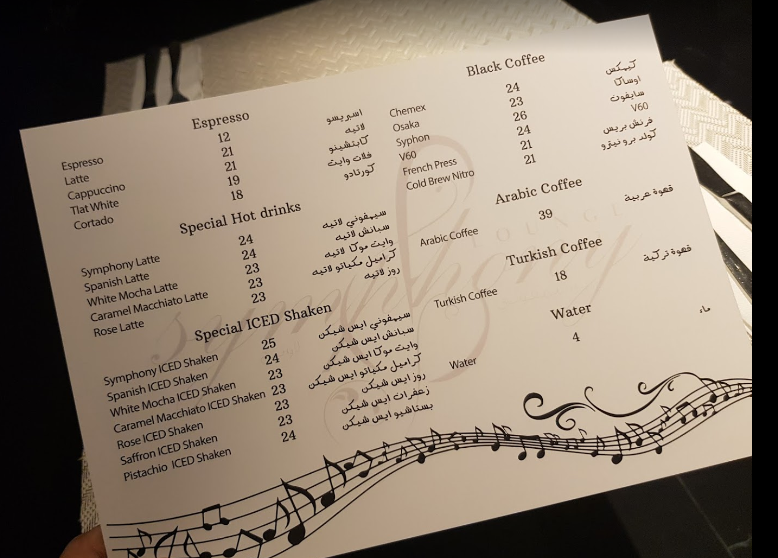 Espresso
Espresso 12 اسبريسو
Latte 21 لاتيه
Cappuccino 21 كابتشينو
Tlat White 19 فلات وايت
Cortado 18 كورتادو
Special Hot drinks
Symphony Latte 24 سيمفوني لاتيه
Spanish Latte 24 سبانش لاتيه
White Mocha Latte 23 وايت موكا لاتيه
Caramel Macchiato Latte 23 كراميل مكياتو لاتيه
Rose Latte 23 روز لاتيه
Special ICED Shaken
Symphony ICED Shaken 25 سيمفوني ايس شيكن
Spanish ICED Shaken 24 سبانش ايس شيكن
White Mocha ICED Shaken 23 وايت موكا ايس شيكن
Caramel Macchiato ICED Shaken 23 كراميل مكياتو ايس شيكن
Rose ICED Shaken 23 روز ايس شيكن
Saffron ICED Shaken 23 زعفران ايس شيكن
Pistachio ICED Shaken 24 بستاشيو ايس شيكن
Black Coffee
Chemex 24 كيمكس
Osaka 23 اوساكا
Syphon 26 سايفون
V60 24 V60
French Press 21 فرنش بريس
Cold Brew Nitro 21 كولد برو نيترو
Arabic Coffee
Arabic Coffee 39 قهوة عربية
Turkish Coffee
Turkish Coffee 18 قهوة تركية
Water
Water 4 ماء
symphony
LOUNGE